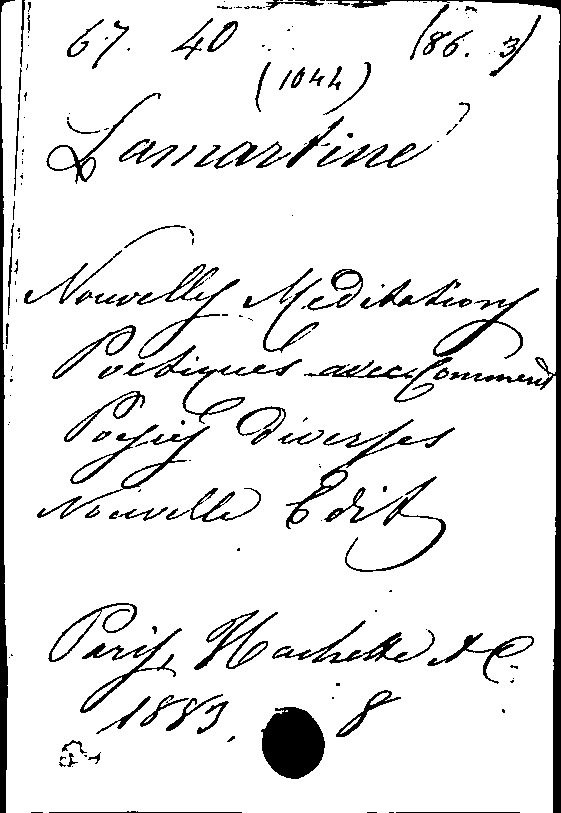 67. 40 (86. 3)
(1044)
Lamartine
Nouvelles Meditations
Poetiques avec Comment
Poesies diverses
Nouvelle Edit
Paris, Hachette et C.
1883. 8